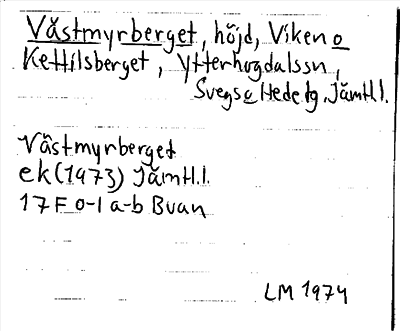 Västmyrberget, höjd, Viken o
Kettilsberget, Ytterhogdalssn,
Svegs o Hede tg, Jämtl.l.
Västmyrberget
ek (1973) Jämtl.l.
17 F 0-1 a-b Buan
LM 1974